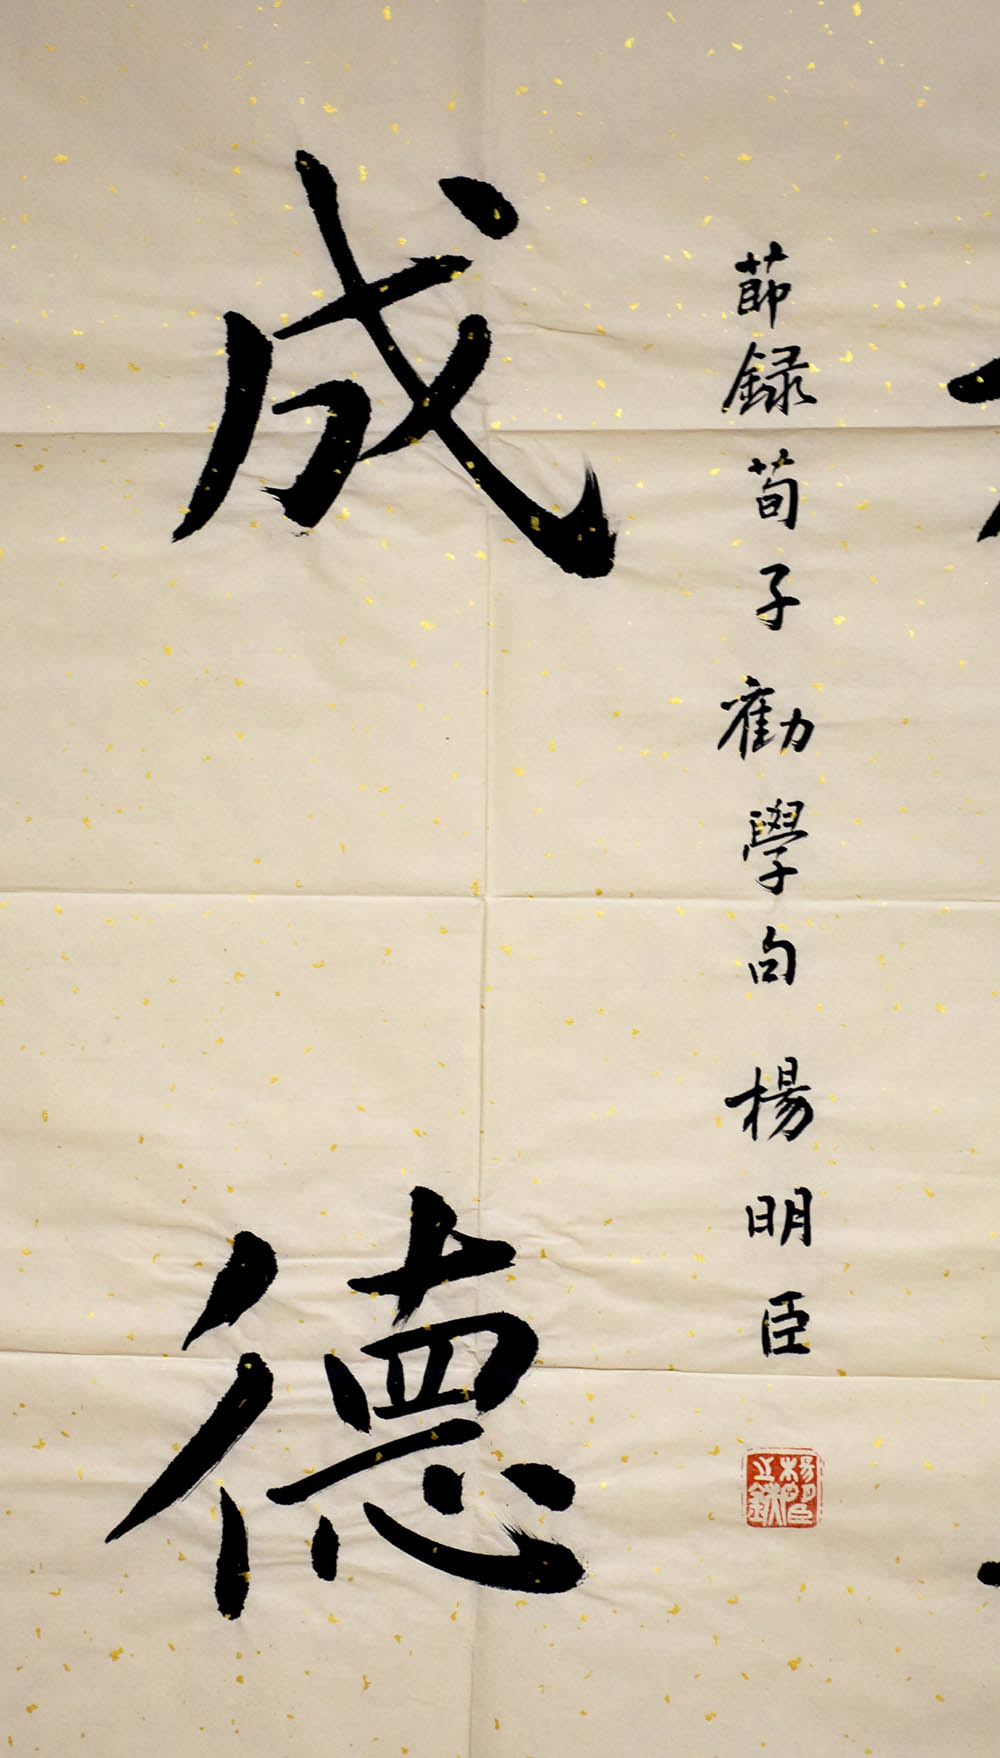 成德
節録荀子勸學句 楊明臣
楊明臣